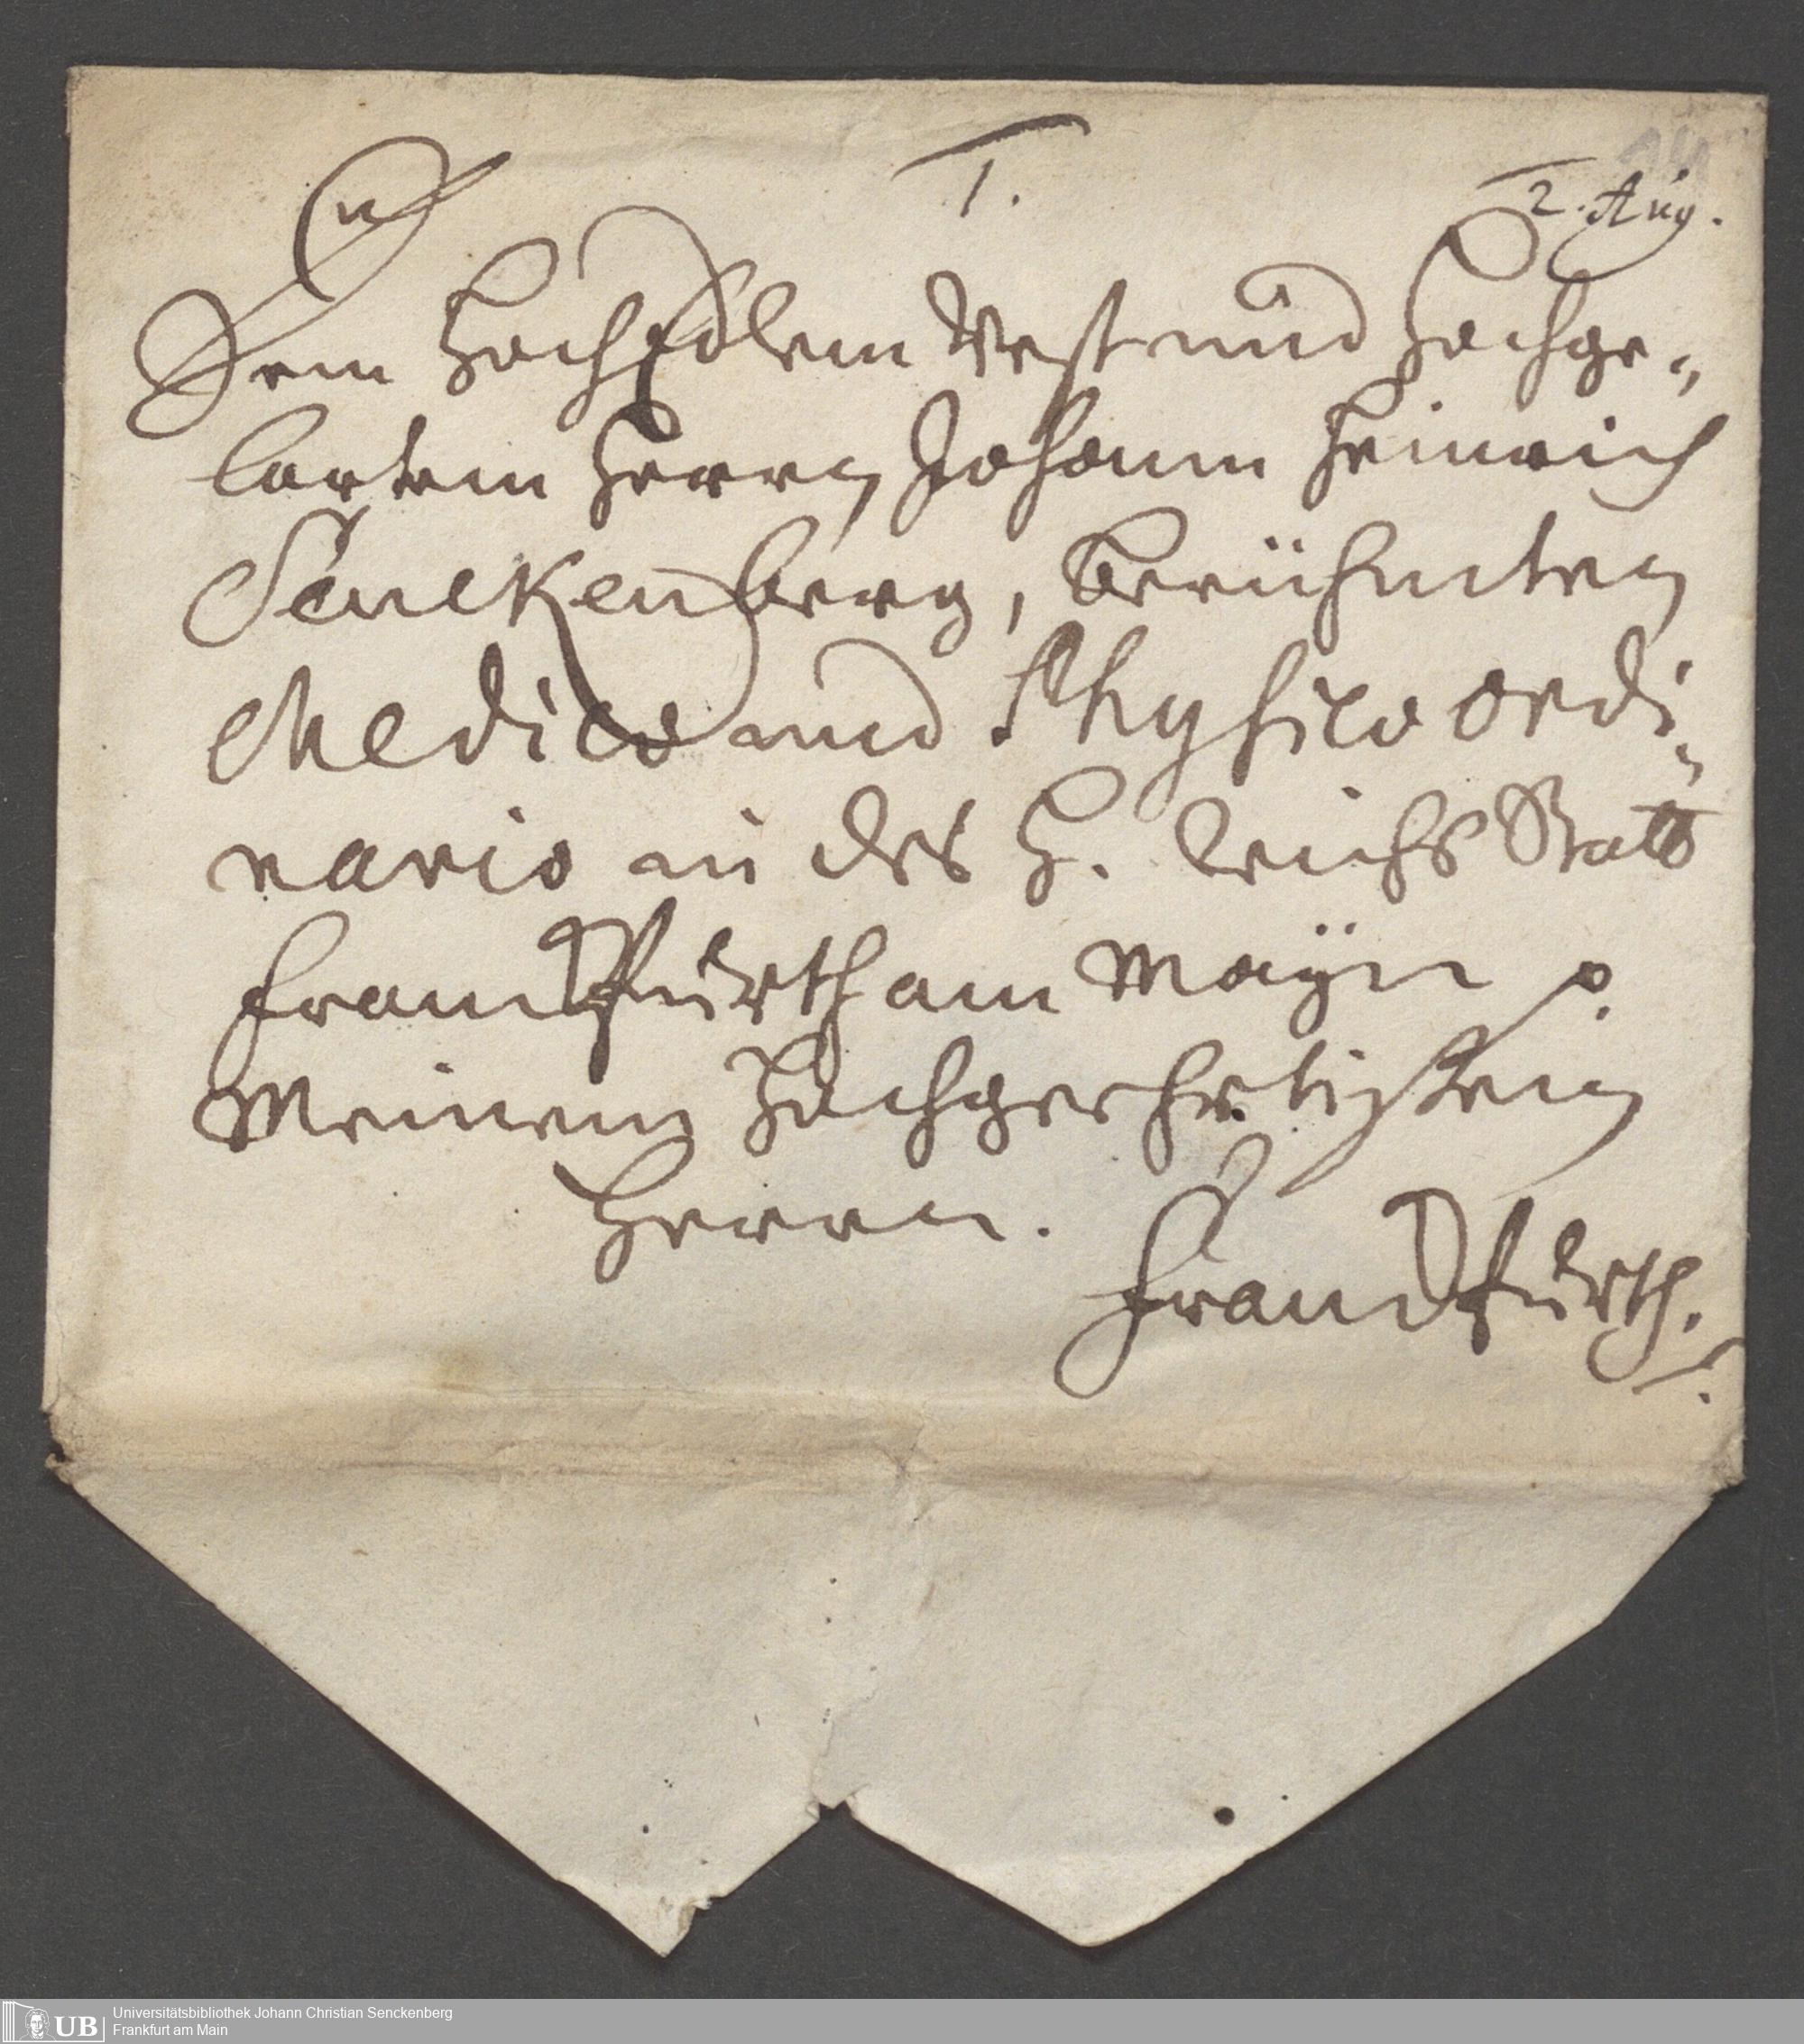 1.
2. Aug.
Dem HochEdlem Vest und Hochge-
lartem Herrn Johann Heinrich
Senckenberg, berühmten
Medico und Physico ordi-
nario in des H. Reichs Statt
Franckfürth am Maÿn p.
Meinem Hochgeehrtisten
Herrn.
Franckfürth.
UB
Universitätsbibliothek Johann Christian Senckenberg
Frankfurt am Main